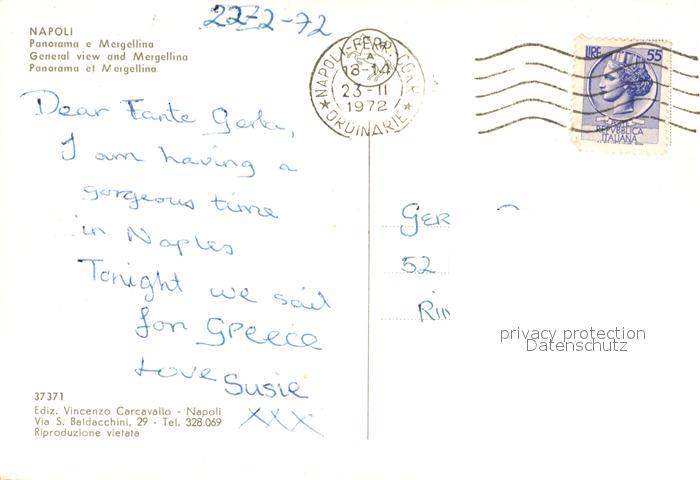 NAPOLI
Panorama e Mergellina
General view and Mergellina
Panorama et Mergellina
22-2-72
NAPOLI-FERR. CORR.
18-14
23-II
1972
ORDINARIE
LIRE 55
POSTE
REPVBBLICA
ITALIANA
Dear Tante Gerta,
I am having a
gorgeous time
in Naples
Tonight we sail
for Greece
Love Susie
XXX
GER
52
RIN
privacy protection
Datenschutz
37371
Ediz. Vincenzo Carcavallo - Napoli
Via S. Baldacchini, 29 - Tel. 328.069
Riproduzione vietata